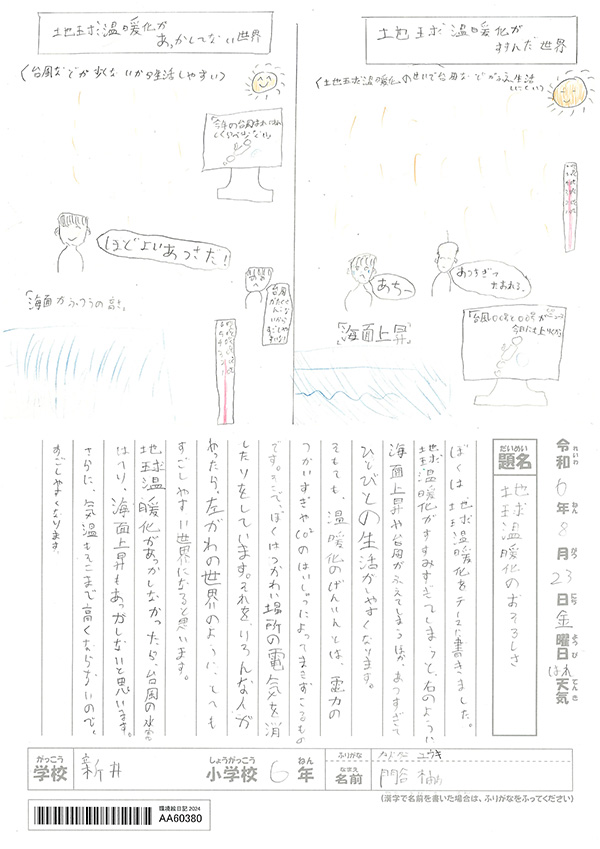 地球温暖化が
あっかしてない世界
(台風などが少くないから生活しやすい)
ほどよいあつさだ！
「海面がふつうの高さ」
地球温暖化が
すすんだ世界
(地球温暖化のせいで台風などがふえ生活しにくい)
あちー
あつすぎてたおれる。
「海面上昇」
令和6年8月23日金曜日はれ天気
れいわ ねん がつ にち ようび てんき
だいめい
題名
地球温暖化のおそろしさ
ぼくは、地球温暖化をテーマに書きました。
地球温暖化がすすみすぎてしまうと、右のように
海面上昇や台風がふえてしまうほか、あつすぎて
ひとびとの生活がしにくくなります。
そもそも、温暖化のげんいんとは、電力の
つかいすぎやCO²のはいしゅつによってまきおこるもの
です。そこで、ぼくはつかわない場所の電気を消
したりをしています。それを、いろんな人が
やったら、左がわの世界のように、とても
すごしやすい世界になると思います。
地球温暖化があっかしなかったら、台風の水害
はへり、海面上昇もあっかしないと思います。
さらに、気温もそこまで高くならないので、
すごしやすくなります。
がっこう
学校
新井
しょうがっこう
小学校
6
ねん
年
ふりがな
ユウキ
なまえ
名前
(漢字で名前を書いた場合は、ふりがなをふってください)
環境絵日記 2024
AA60380